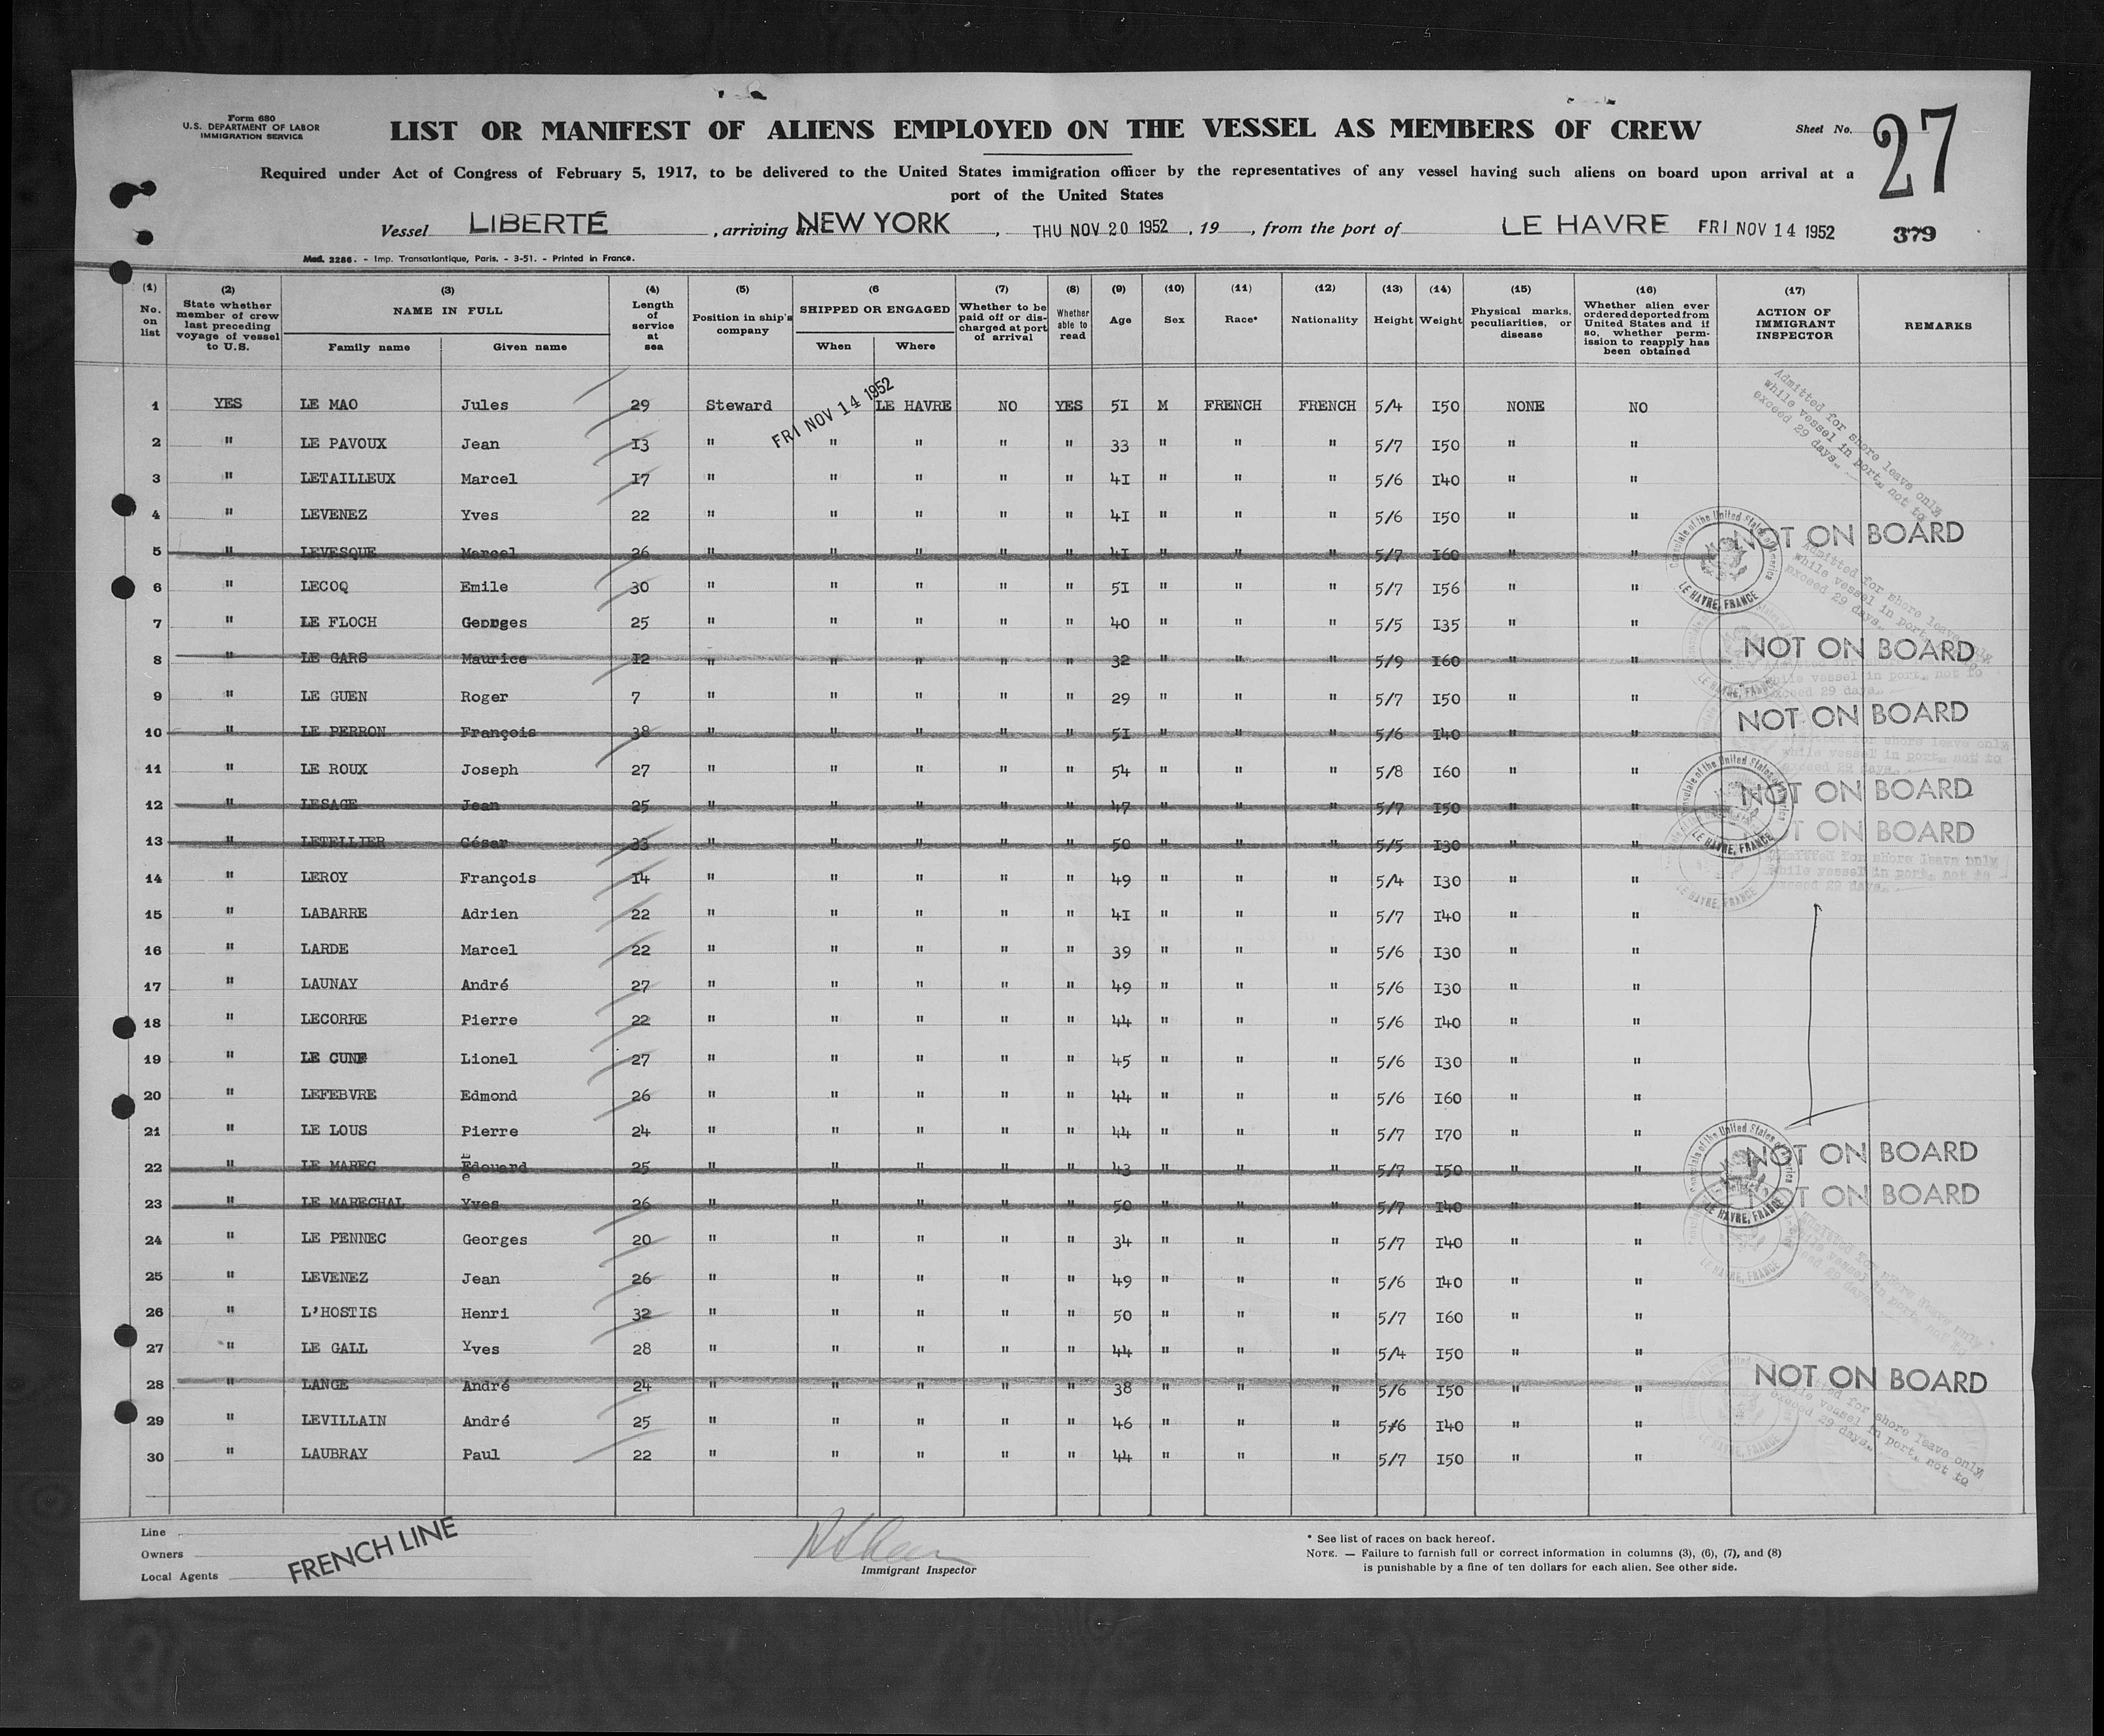 Form 680
U.S. DEPARTMENT OF LABOR
IMMIGRATION SERVICE
LIST OR MANIFEST OF ALIENS EMPLOYED ON THE VESSEL AS MEMBERS OF CREW
Sheet No. 27
Required under Act of Congress of February 5, 1917, to be delivered to the United States immigration officer by the representatives of any vessel having such aliens on board upon arrival at a
port of the United States
Vessel LIBERTÉ, arriving at NEW YORK, THU NOV 20 1952, 19, from the port of LE HAVRE FRI NOV 14 1952 379
Mod. 3286. - Imp. Transatlantique, Paris. - 3-51. - Printed in France.
(1) No. on list (2) State whether member of crew last preceding voyage of vessel to U.S. (3) NAME IN FULL Family name Given name (4) Length of service at sea (5) Position in ship's company (6 SHIPPED OR ENGAGED When Where (7) Whether to be paid off or discharged at port of arrival (8) Whether able to read (9) Age (10) Sex (11) Race* (12) Nationality (13) Height (14) Weight (15) Physical marks, peculiarities, or disease (16) Whether alien ever ordered deported from United States and if so, whether permission to reapply has been obtained (17) ACTION OF IMMIGRANT INSPECTOR REMARKS
1 YES LE MAO Jules 29 Steward FRI NOV 14 1952 LE HAVRE NO YES 51 M FRENCH FRENCH 5/4 150 NONE NO
Admitted for shore leave only while vessel in port, not to exceed 29 days.
2 " LE PAVOUX Jean 13 " " " " " 33 " " " 5/7 150 " "
3 " LETAILLEUX Marcel 17 " " " " " 41 " " " 5/6 140 " "
4 " LEVENEZ Yves 22 " " " " " 41 " " " 5/6 150 " "
5 " LEVESQUE Marcel 26 " " " " " 41 " " " 5/7 160 " " NOT ON BOARD
Consulate of the United States of America LE HAVRE, FRANCE
6 " LECOQ Emile 30 " " " " " 51 " " " 5/7 156 " "
Admitted for shore leave while vessel in port, exceed 29 days.
7 " LE FLOCH Georges 25 " " " " " 40 " " " 5/5 135 " "
8 " LE GARS Maurice 12 " " " " " 32 " " " 5/9 160 " " NOT ON BOARD
9 " LE GUEN Roger 7 " " " " " 29 " " " 5/7 150 " "
while vessel in port, not to exceed 29 days.
10 " LE PERRON François 38 " " " " " 51 " " " 5/6 140 " " NOT ON BOARD
11 " LE ROUX Joseph 27 " " " " " 54 " " " 5/8 160 " "
for shore leave only while vessel in port, not to exceed 29 days.
12 " LESAGE Jean 25 " " " " " 47 " " " 5/7 150 " " NOT ON BOARD
Consulate of the United States of America LE HAVRE, FRANCE
13 " LETELLIER César 33 " " " " " 50 " " " 5/5 130 " " NOT ON BOARD
14 " LEROY François 14 " " " " " 49 " " " 5/4 130 " "
Admitted for shore leave only while vessel in port, not to exceed 29 days.
LE HAVRE, FRANCE
15 " LABARRE Adrien 22 " " " " " 41 " " " 5/7 140 " "
16 " LARDE Marcel 22 " " " " " 39 " " " 5/6 130 " "
17 " LAUNAY André 27 " " " " " 49 " " " 5/6 130 " "
18 " LECORRE Pierre 22 " " " " " 44 " " " 5/6 140 " "
19 " LE CUNF Lionel 27 " " " " " 45 " " " 5/6 130 " "
20 " LEFEBVRE Edmond 26 " " " " " 44 " " " 5/6 160 " "
21 " LE LOUS Pierre 24 " " " " " 44 " " " 5/7 170 " "
22 " LE MAREC Edouard 25 " " " " " 43 " " " 5/7 150 " " NOT ON BOARD
Consulate of the United States of America LE HAVRE, FRANCE
23 " LE MARECHAL Yves 26 " " " " " 50 " " " 5/7 140 " " NOT ON BOARD
24 " LE PENNEC Georges 20 " " " " " 34 " " " 5/7 140 " "
LE HAVRE, FRANCE
25 " LEVENEZ Jean 26 " " " " " 49 " " " 5/6 140 " "
26 " L'HOSTIS Henri 32 " " " " " 50 " " " 5/7 160 " "
27 " LE GALL Yves 28 " " " " " 44 " " " 5/4 150 " "
28 " LANGE André 24 " " " " " 38 " " " 5/6 150 " " NOT ON BOARD
29 " LEVILLAIN André 25 " " " " " 46 " " " 5/6 140 " "
for shore leave only, while vessel in port, not to exceed 29 days.
LE HAVRE, FRANCE
30 " LAUBRAY Paul 22 " " " " " 44 " " " 5/7 150 " "
Line
Owners
Local Agents
FRENCH LINE
Immigrant Inspector
* See list of races on back hereof.
NOTE. — Failure to furnish full or correct information in columns (3), (6), (7), and (8)
is punishable by a fine of ten dollars for each alien. See other side.